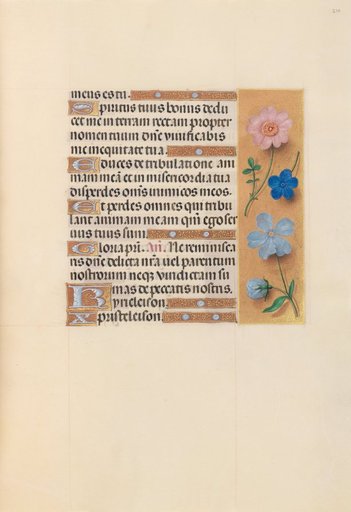 meus es tu.
Spiritus tuus bonus dedu
cet me in terram rectam propter
nomen tuum dñe vivificabis
me in equitate tua.
Educes de tribulatione ani
mam meã et in misericordia tua
disperdes om̃s inimicos meos.
Et perdes omnes qui tribu
lant animam meam qm̃ ego ser
uus tuus sum.
Gloria pr̃i. Añ. Ne reminisca
ris dñe delicta nr̃a uel parentum
nostrorum neqз vindictam su
mas de peccatis nostris.
Kyrieleison.
Xpristeleison.